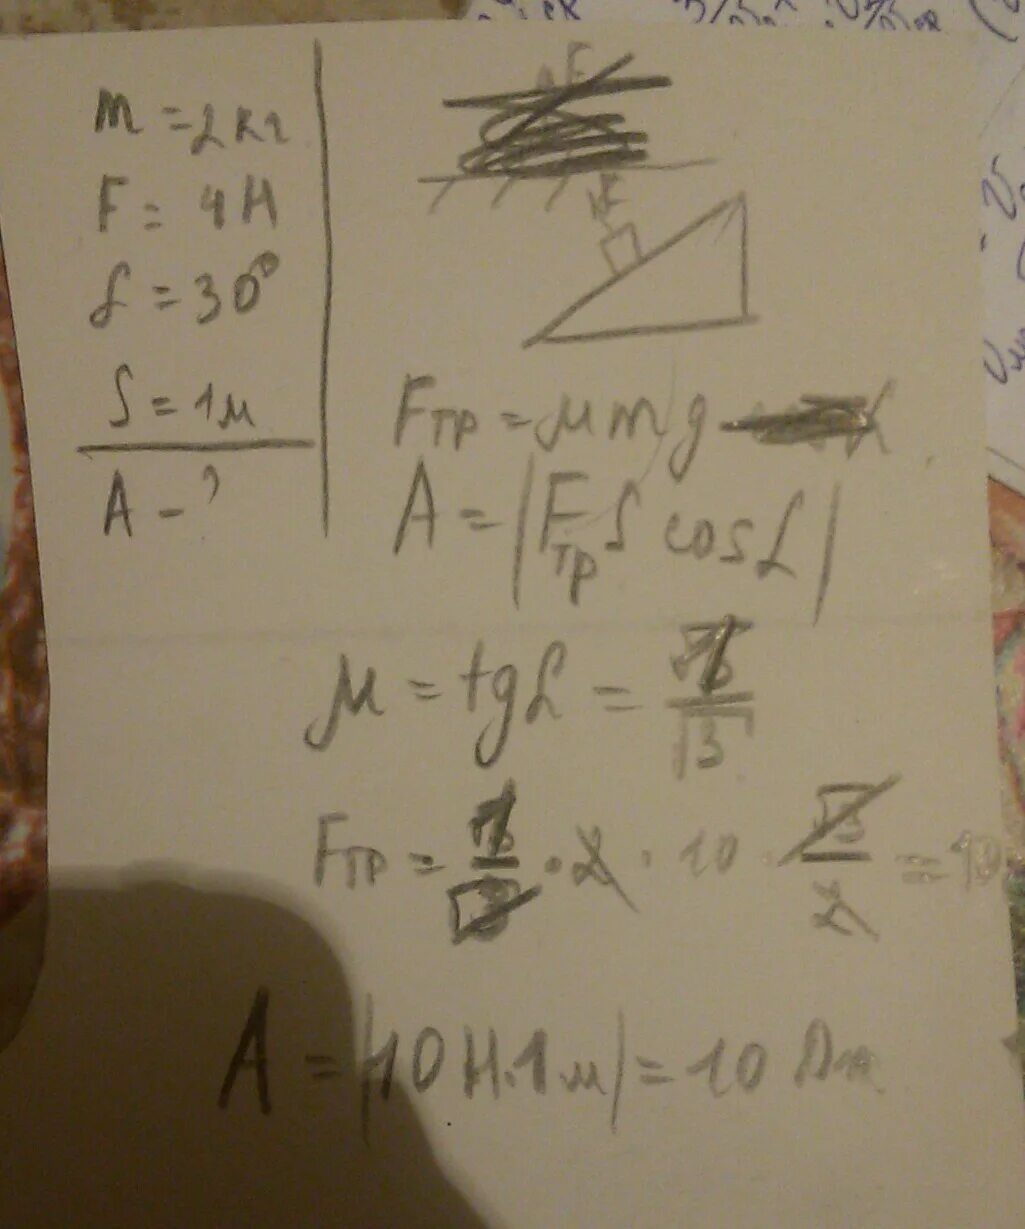 m = 2кг
F = 4Н
α = 30°
S = 1м
A - ?
F
Fтр = μmg
A = |Fтр S cosα|
μ = tgα = 1/√3
Fтр = 1/√3 · 2 · 10 · √3/2 = 10
A = |10Н·1м| = 10 Дж